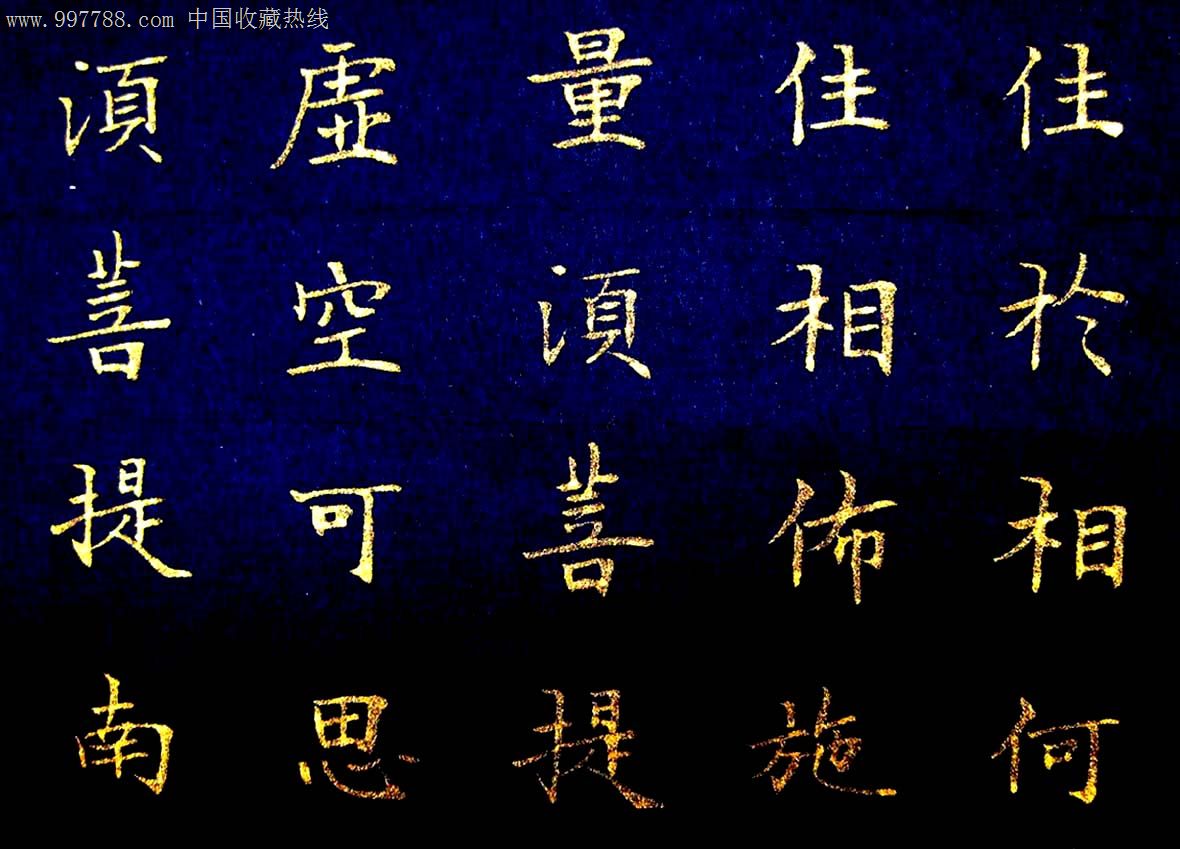 www.997788.com 中国收藏热线
佳於相何
佳相佈施
量湏菩提
虚空可思
湏菩提南